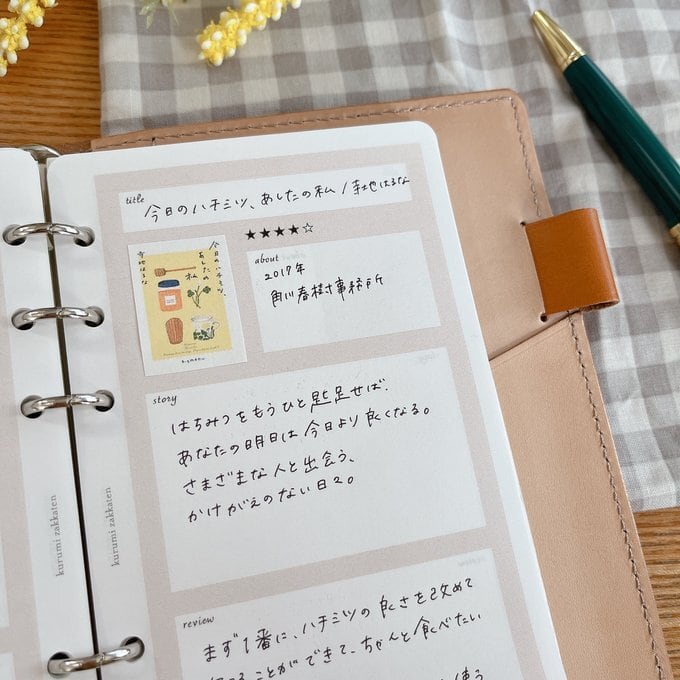 title
今日のハチミツ、あしたの私 / 寺地はるな
★★★★☆
今日の
ハチミツ、
あしたの
私
寺地はるな
about
2017年
角川春樹事務所
story
はちみつをもうひと匙足せば、
あなたの明日は今日より良くなる。
さまざまな人と出会う、
かけがえのない日々。
review
まず1番に、ハチミツの良さを改めて
ことができて、ちゃんと食べたい
使う
kurumi zakkaten
kurumi zakkaten